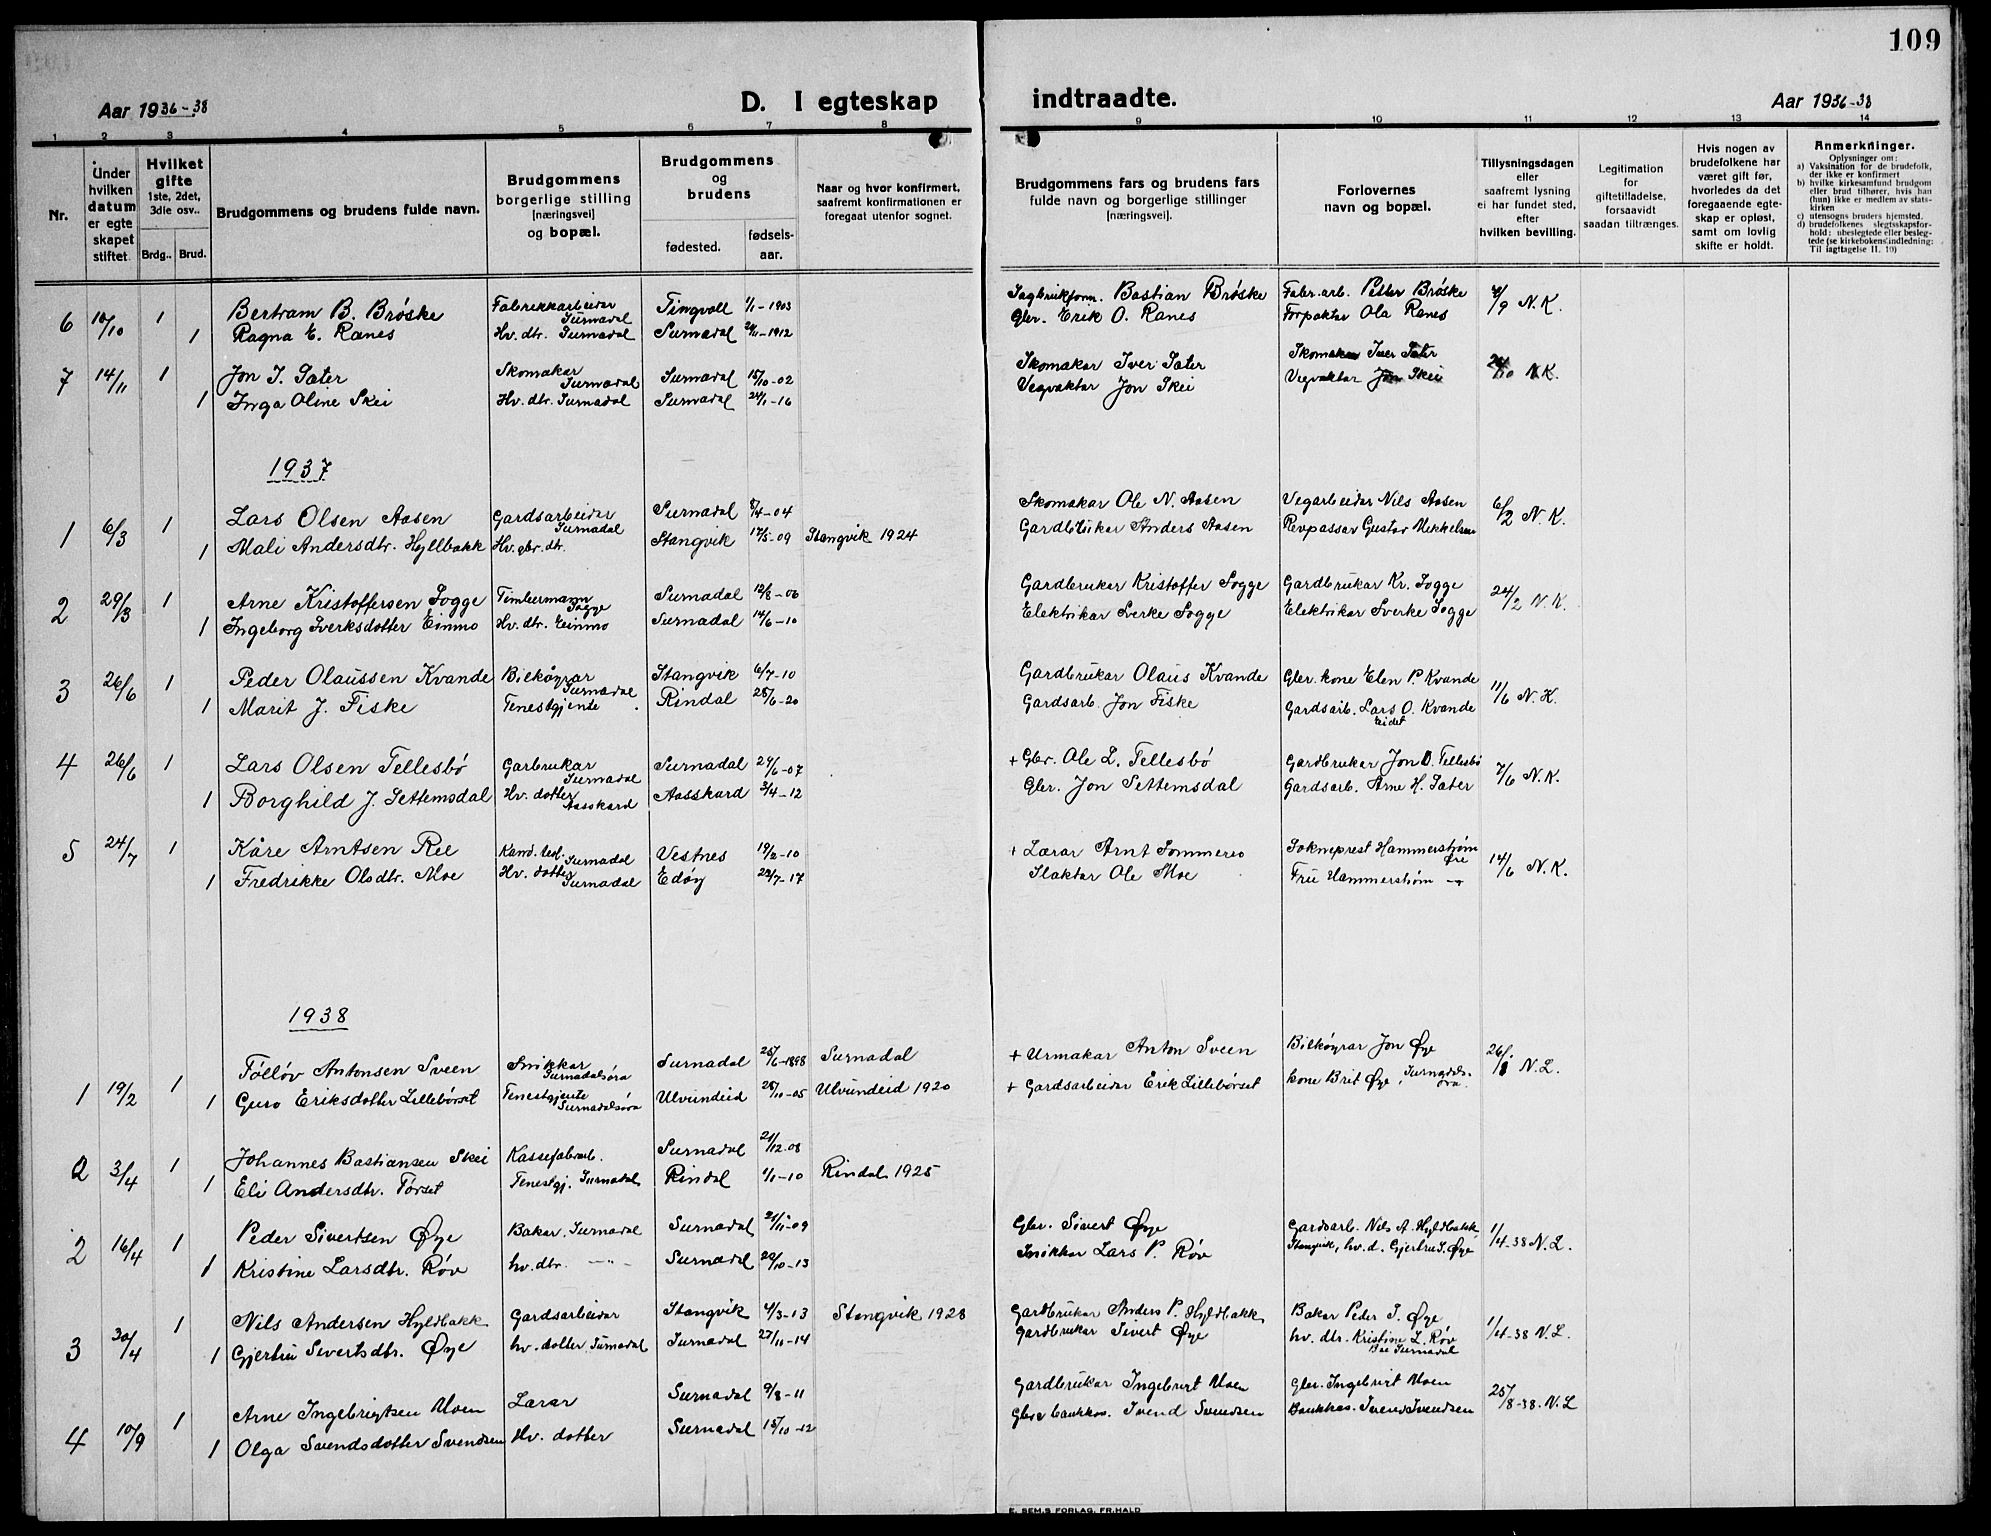 109
Aar 1936-38
D. I egteskap indtraadte.
Aar 1936-38
1 2 3 4 5 6 7 8 9 10 11 12 13 14
Nr.
Under hvilken datum er egteskapet stiftet
Hvilket gifte 1ste, 2det, 3die osv..
Brdg.. Brud.
Brudgommens og brudens fulde navn.
Brudgommens borgerlige stilling [næringsvei] og bopæl.
Brudgommens og brudens
fødested.
fødselsaar.
Naar og hvor konfirmert, saafremt konfirmationen er foregaat utenfor sognet.
Brudgommens fars og brudens fars fulde navn og borgerlige stillinger [næringsvei].
Forlovernes navn og bopæl.
Tillysningsdagen eller saafremt lysning ei har fundet sted, efter hvilken bevilling.
Legitimation for giftetilladelse, forsaavidt saadan tiltrænges.
Hvis nogen av brudefolkene har været gift før, hvorledes da det foregaaende egteskap er opløst, samt om lovlig skifte er holdt.
Anmerkninger.
Oplysninger om:
a) Vaksination for de brudefolk, der ikke er konfirmert
b) hvilke kirkesamfund brudgom eller brud tilhører, hvis han (hun) ikke er medlem av statskirken
c) utensogns bruders hjemsted.
d) brudefolkenes slegtsskapsforhold: ubeslegtede eller beslegtede (se kirkebokens indledning: Til iagttagelse II. 10)
6 10/10 1 Bertram B. Brøske Fabrikkarbeidar Surnadal Tingvoll 1/1-1903 Sagbrukform. Bastian Brøske Fabr.arb. Petter Brøske /9 N.K.
1 Ragna E. Ranes Hv. dtr. Surnadal Surnadal 2/11-1912 Gbr. Erik O. Ranes Forpaktar Ola Ranes
7 14/11 1 Jon I. Sæter Skomakar Surnadal Surnadal 15/10-02 Skomakar Iver Sæter Skomakar Iver Sæter 24/10 N.K.
1 Inga Oline Skei Hv. dtr. Surnadal Surnadal 24/1-16 Vegvaktar Jon Skei Vegvaktar Jon Skei
1937
1 6/3 1 Lars Olsen Aasen Gardsarbeidar Surnadal Surnadal 8/4-04 Skomakar Ole N. Aasen Vegarbeidar Nils Aasen 6/2 N.K.
1 Mali Andersdtr. Hyllbakk Hv. gbr. dtr. Stangvik 17/5-09 Stangvik 1924 Gardbrukar Anders Aasen Revpassar Gustav Mikkelsen
2 29/3 1 Arne Kristoffersen Sogge Timbermann Sogge Surnadal 12/8-06 Gardbrukar Kristoffer Sogge Gardbrukar Kr. Sogge 24/2 N.K.
1 Ingeborg Sverksdotter Einmo Hv. dtr. Einmo Surnadal 14/6-10 Elektrikar Sverke Sogge Elektrikar Sverke Sogge
3 26/6 1 Peder Olaussen Kvande Bilkøyrar Surnadal Stangvik 6/7-10 Gardbrukar Olaus Kvande Gbr. kone Elen P. Kvande 11/6 N.K.
1 Marit J. Fiske Tenestgjente Rindal 28/6-20 Gardsarb. Jon Fiske Gardsarb. Lars O. Kvande Eidet
4 26/6 1 Lars Olsen Tellesbø Garbrukar Surnadal Surnadal 27/6-07 + Gbr. Ole L. Tellesbø Gardbrukar Jon O. Tellesbø 7/6 N.K.
1 Borghild J. Settemsdal Hv. dotter Aasskard Aasskard 3/4-12 Gbr. Jon Settemsdal Gardsarb. Arne H. Sæter
5 24/7 1 Kåre Arntsen Ree Kand. teol. Surnadal Vestnes 19/2-10 + Lærar Arnt Sommerro Sokneprest Hammerstrøm Øre 14/6 N.K.
1 Fredrikke Olsdtr. Moe Hv. dotter Surnadal Edøy 22/7-17 Slaktar Ole Moe Fru Hammerstrøm
1938
1 19/2 1 Tølløv Antonsen Sveen Snikkar Surnadalsøra Surnadal 25/6-1898 Surnadal + Urmakar Anton Sveen Bilkøyrar Jon Øye 26/1 N.L.
1 Guro Eriksdotter Lillebørset Tenestgjente Surnadalsøra Ulvundeid 28/11-05 Ulvundeid 1920 + Gardsarbeidar Erik Lillebørset kone Brit Øye, Surnadalsøra
2 3/4 1 Johannes Bastiansen Skei Kassefabrarb. Surnadal 21/12-08
1 Eli Andersdtr. Tørset Tenestgj. Surnadal Rindal 1/1-10 Rindal 1925
2 16/4 1 Peder Sivertsen Øye Bakar, Surnadal Surnadal 21/11-09 Gbr. Sivert Øye Gardsarb. Nils A. Hyldbakk, 1/4-38 N.L.
1 Kristine Larsdtr. Røv hv. dtr. —"— Surnadal 22/10-13 Snikkar Lars P. Røv Stangvik, hv. d. Gjertru S. Øye
3 30/4 1 Nils Andersen Hyldbakk Gardsarbeidar Stangvik 4/3-13 Stangvik 1928 Gardbrukar Anders P. Hyldbakk Bakar Peder S. Øye 1/4-38 N.L.
1 Gjertru Sivertsdtr. Øye hv. dotter Surnadal Surnadal 27/11-14 Gardbrukar Sivert Øye hv. dtr. Kristine L. Røv Surnadal
4 10/9 1 Arne Ingebrigtsen Moen Lærar Surnadal 9/8-11 Gardbrukar Ingebrigt Moen Gbr. Ingebrigt Moen 25/8-38. N.L
1 Olga Svendsdotter Svendsen Hv. dotter Surnadal 15/10-12 Gbr. bankkas. Svend Svendsen Bankkas. Svend Svendsen
E. SEM.S FORLAG, FR.HALD